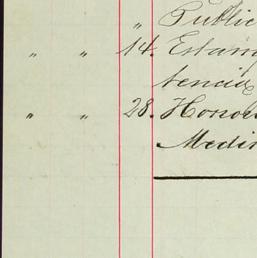 " Public
" " 14. Estam
tencia
" " 28. Honor
Medi